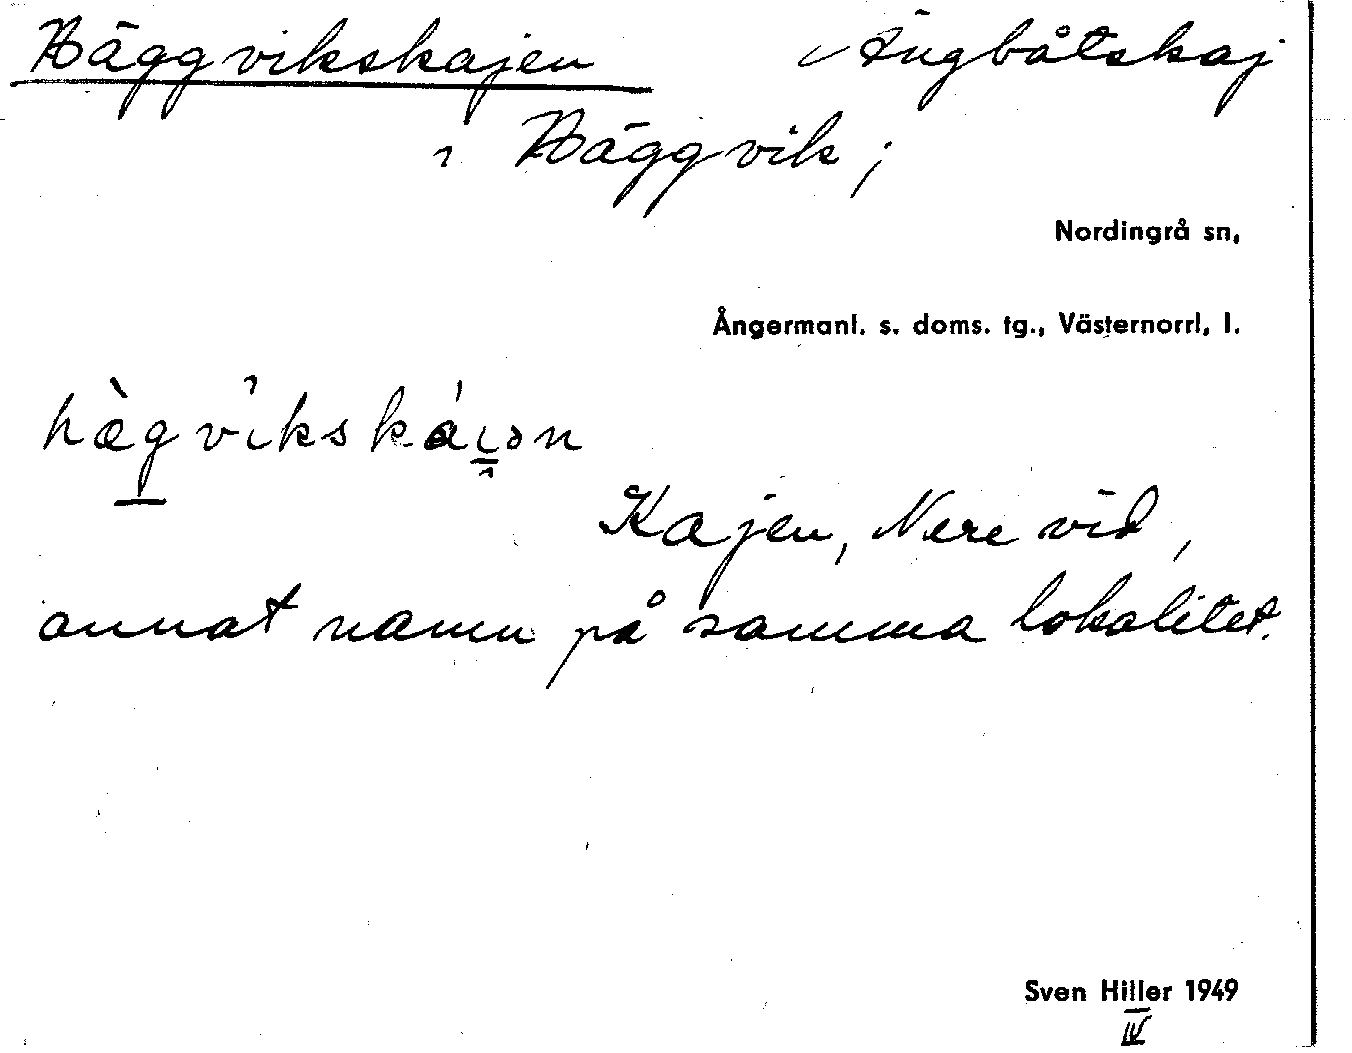 Häggvikskajen Ångbåtskaj
i Häggvik;
Nordingrå sn,
Ångermanl. s. doms. tg., Västernorrl. l.
hæ̀gvikskáiən
Kajen, Nere vid,
annat namn på samma lokalitet.
Sven Hiller 1949
IV